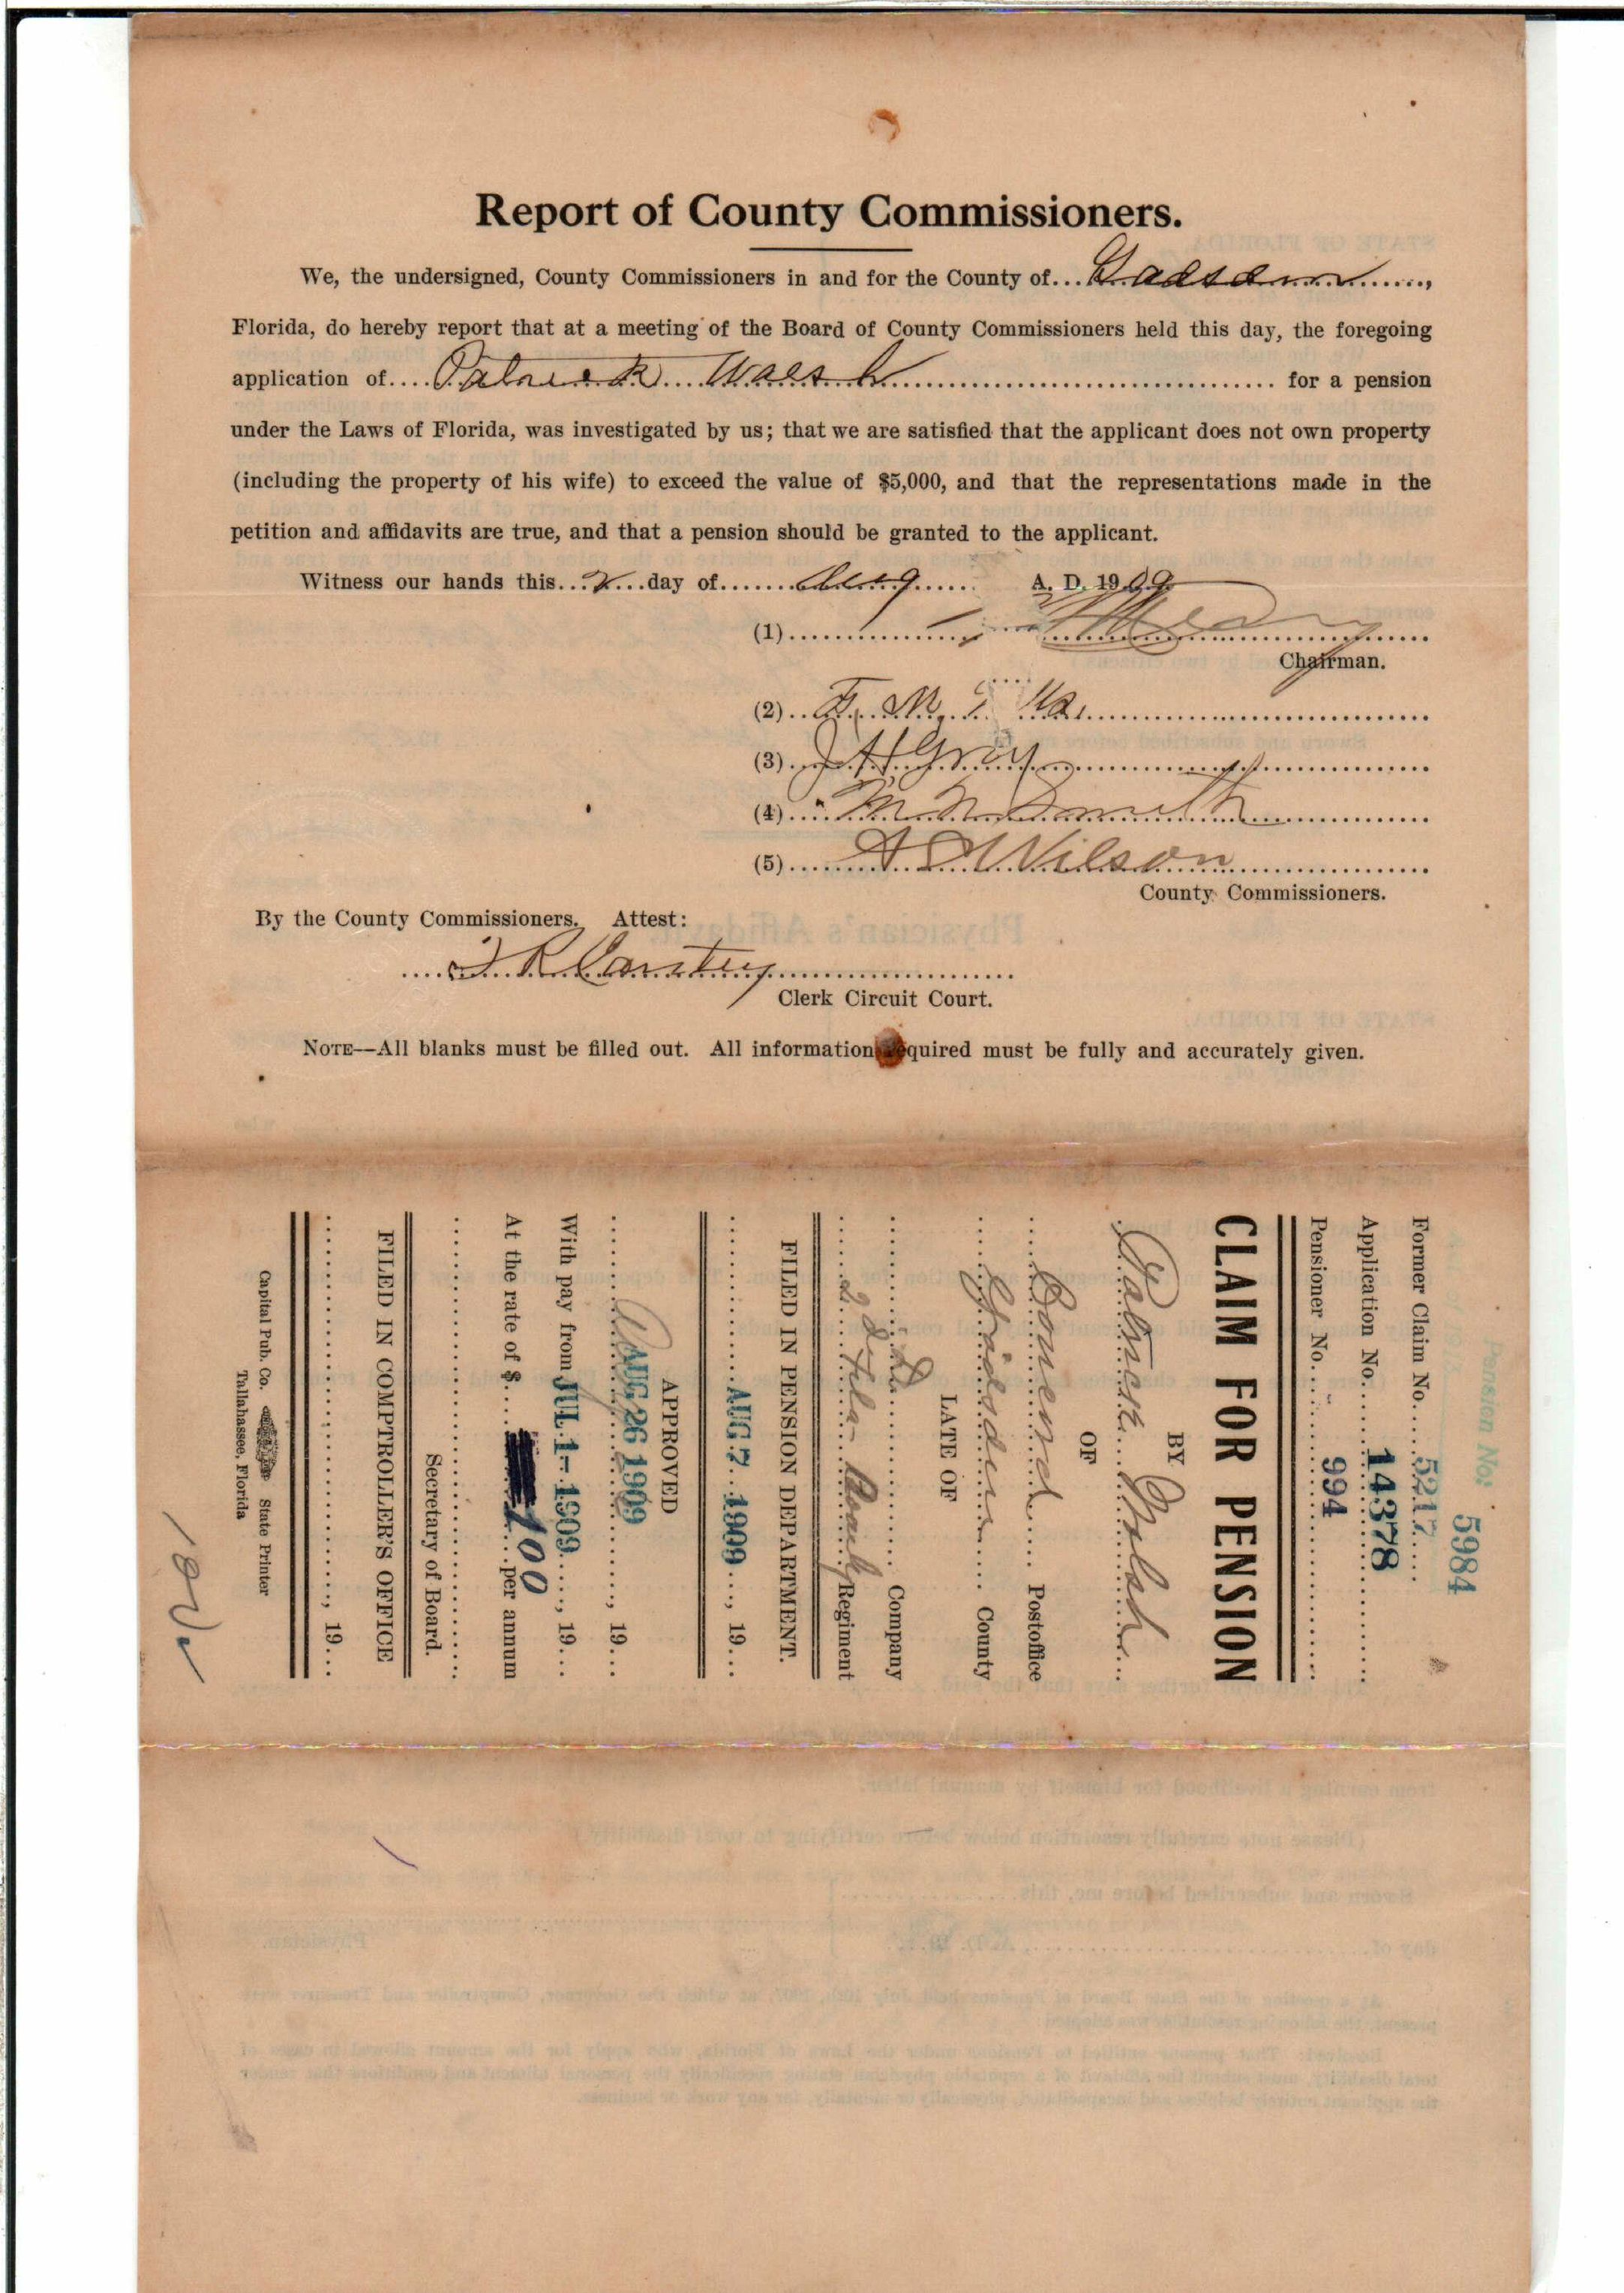 Report of County Commissioners.
We, the undersigned, County Commissioners in and for the County of...Gadsden........,
Florida, do hereby report that at a meeting of the Board of County Commissioners held this day, the foregoing
application of....Patrick Walsh.... for a pension
under the Laws of Florida, was investigated by us; that we are satisfied that the applicant does not own property
(including the property of his wife) to exceed the value of $5,000, and that the representations made in the
petition and affidavits are true, and that a pension should be granted to the applicant.
Witness our hands this...2...day of.......Aug....... A. D. 1909
(1)
Chairman.
(2) F. M.
(3) J H Gray
(4) M N Smith
(5) A D Wilson
County Commissioners.
By the County Commissioners. Attest:
Clerk Circuit Court.
NOTE—All blanks must be filled out. All information required must be fully and accurately given.
Pension No: 5984
Former Claim No....5217....
Application No....14378
Pensioner No....994
CLAIM FOR PENSION
BY
Patrick Walsh
OF
Postoffice
Gadsden County
LATE OF
Company
2d Fla Regiment
FILED IN PENSION DEPARTMENT.
AUG 7 1909..., 19...
APPROVED
AUG 26 1909..., 19...
With pay from JUL 1-1909...., 19...
At the rate of $....100 per annum
Secretary of Board.
FILED IN COMPTROLLER'S OFFICE
..., 19...
Capital Pub. Co. State Printer
Tallahassee, Florida